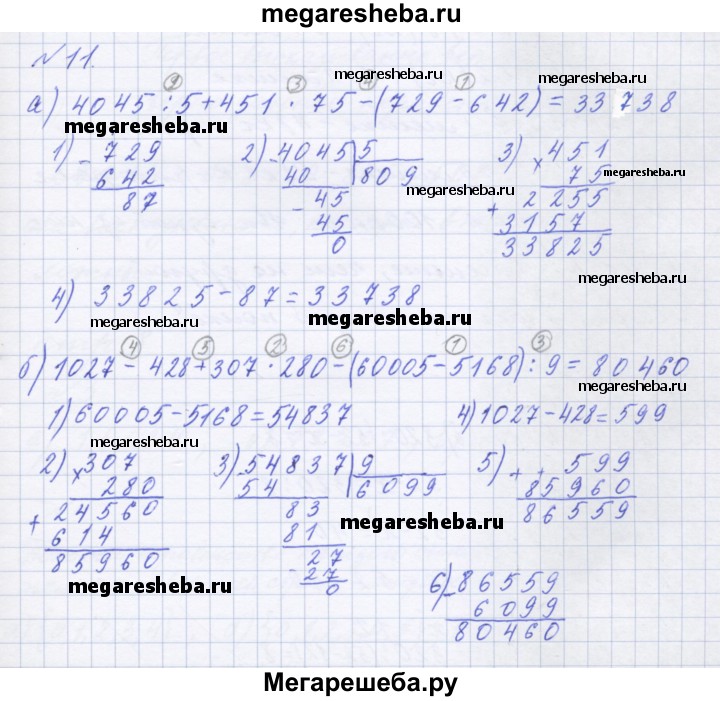 megaresheba.ru
№ 11.
megaresheba.ru megaresheba.ru
② ③ ④ ①
а) 4045 : 5 + 451 · 75 - (729 - 642) = 33738
megaresheba.ru
1) - 729 2) - 4045 | 5 3) × 451
642 40 809 75 megaresheba.ru
87 - 45 megaresheba.ru 2 255
45 + 3157
0 33825
megaresheba.ru
4) 33825 - 87 = 33738
megaresheba.ru megaresheba.ru
④ ⑤ ② ⑥ ① ③
б) 1027 - 428 + 307 · 280 - (60005 - 5168) : 9 = 80460
megaresheba.ru
1) 60005 - 5168 = 54837 4) 1027 - 428 = 599
megaresheba.ru megaresheba.ru
2) × 307 3) - 54837 | 9 5) + 599
280 54 6099 85960
+ 24560 83 86559
614 81 megaresheba.ru
85960 - 27
megaresheba.ru 27 6) - 86559
0 6099
80460
Мегарешеба.ру